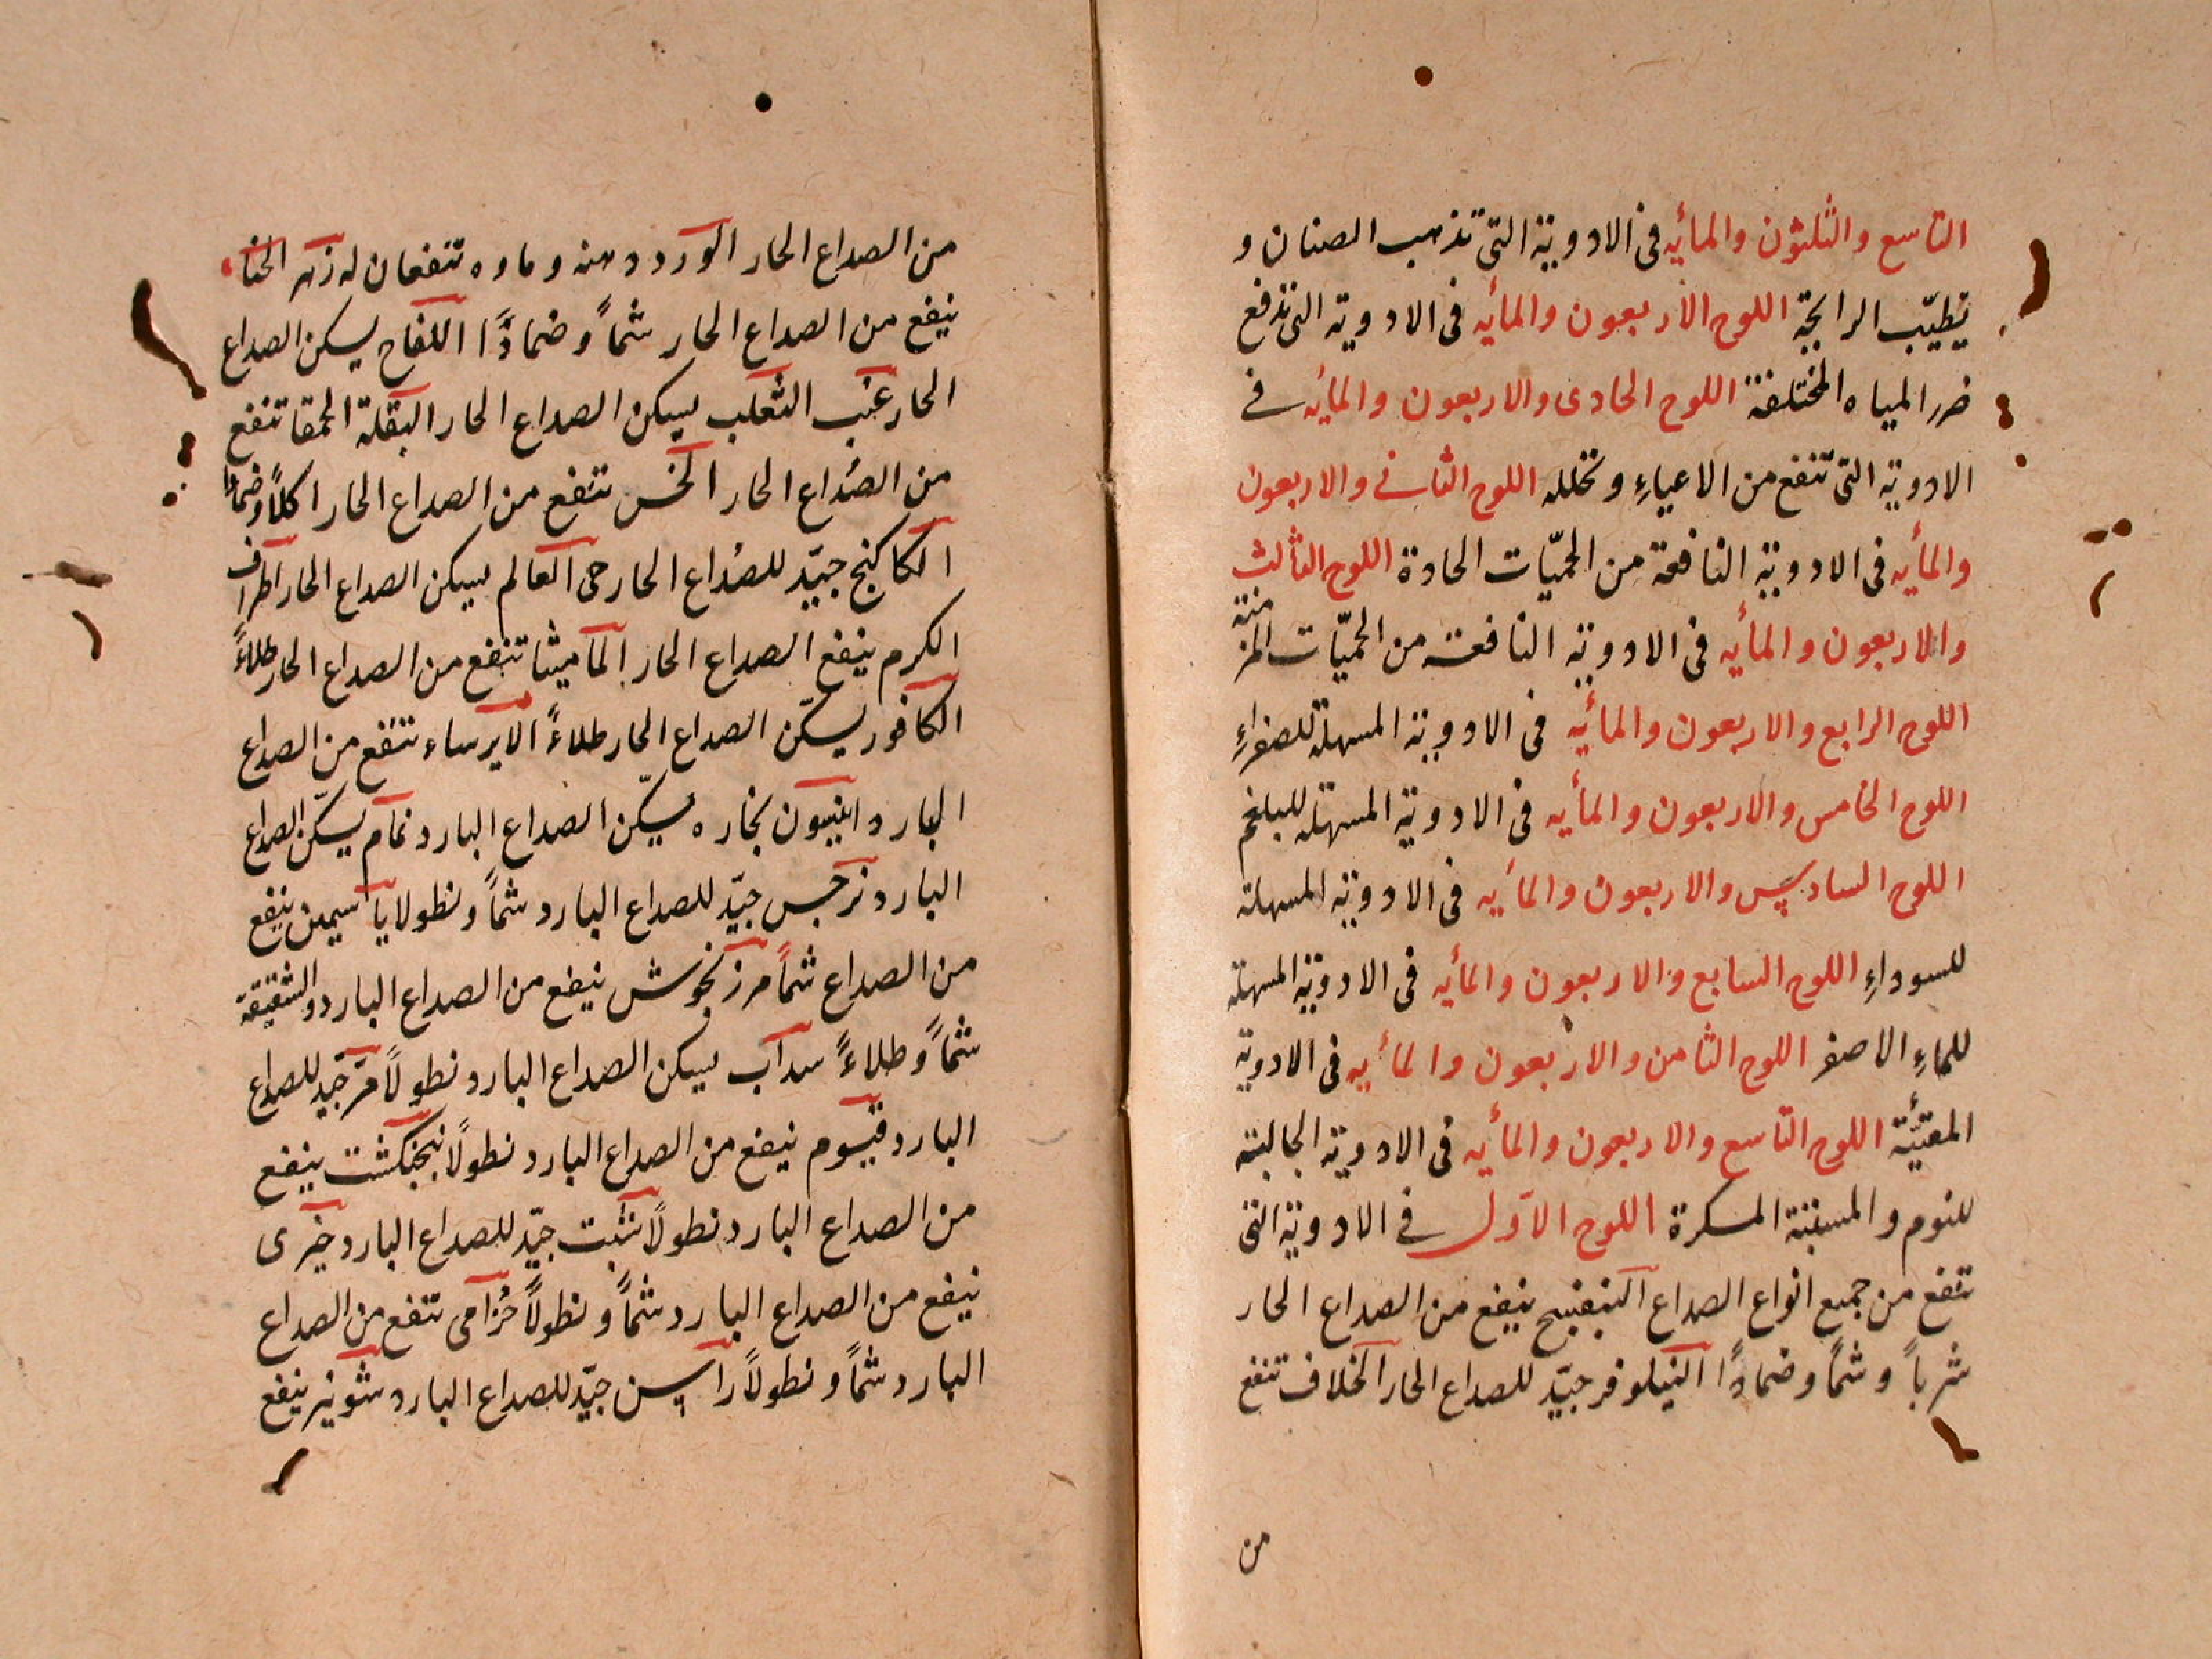 التاسع والثلثون والمأيه فى الادوية التى تذهب الصنان و
تطيّب الرايحة اللوح الاربعون والمأيه فى الادوية التى تدفع
ضرر المياه المختلفة اللوح الحادى والاربعون والمأيه فى
الادوية التى تنفع من الاعياءِ وتحلله اللوح الثانى والاربعون
والمأيه فى الادوية النافعة من الحميّات الحادة اللوح الثالث
والاربعون والمأيه فى الادوية النافعة من الحميّات المزمنة
اللوح الرابع والاربعون والمأيه فى الادوية المسهلة للصفراءِ
اللوح الخامس والاربعون والمأيه فى الادوية المسهلة للبلغم
اللوح السادس والاربعون والمأيه فى الادوية المسهلة
للسوداءِ اللوح السابع والاربعون والمأيه فى الادوية المسهلة
للماءِ الاصفر اللوح الثامن والاربعون والمأيه فى الادوية
المقيّئة اللوح التاسع والاربعون والمأيه فى الادوية الجالبة
للنوم و المسكرة اللوح الاول فى الادوية التى
تنفع من جميع انواع الصداع البنفسج ينفع من الصداع الحار
شرباً وشماً وضماداً النيلوفر جيّد للصداع الحار الخلاف تنفع
من
من الصداع الحار الورد دهنه وماوه تنفعان له زهر الحنا
ينفع من الصداع الحار شماً وضماداً اللفاح يسكن الصداع
الحار عنب الثعلب يسكن الصداع الحار البقلة الحمقا تنفع
من الصُداع الحار الخس تنفع من الصداع الحار اكلاً وضماداً
الكاكنج جيّد للصُداع الحار حى العالم يسكن الصداع الحار اطراف
الكرم ينفع الصداع الحار الماميثا تنفع من الصداع الحار طلاءً
الكافور يسكّن الصداع الحار طلاءً الايرساء تنفع من الصداع
البارد انيسون بخاره يسكّن الصداع البارد نمام يسكّن الصداع
البارد نرجس جيّد للصداع البارد شماً ونطولا ياسمين ينفع
من الصداع شماً مرزنجوش ينفع من الصداع البارد والشقيقة
شماً وطلاءً سداب يسكن الصداع البارد نطولاً مرّ جيّد للصداع
البارد قيسوم ينفع من الصداع البارد نطولاً بنجنكشت ينفع
من الصداع البارد نطولاً شبت جيّد للصداع البارد خيرى
ينفع من الصداع البارد شماً ونطولاً خُزامى تنفع من الصداع
البارد شماً ونطولاً راسن جيّد للصداع البارد شونيز ينفع